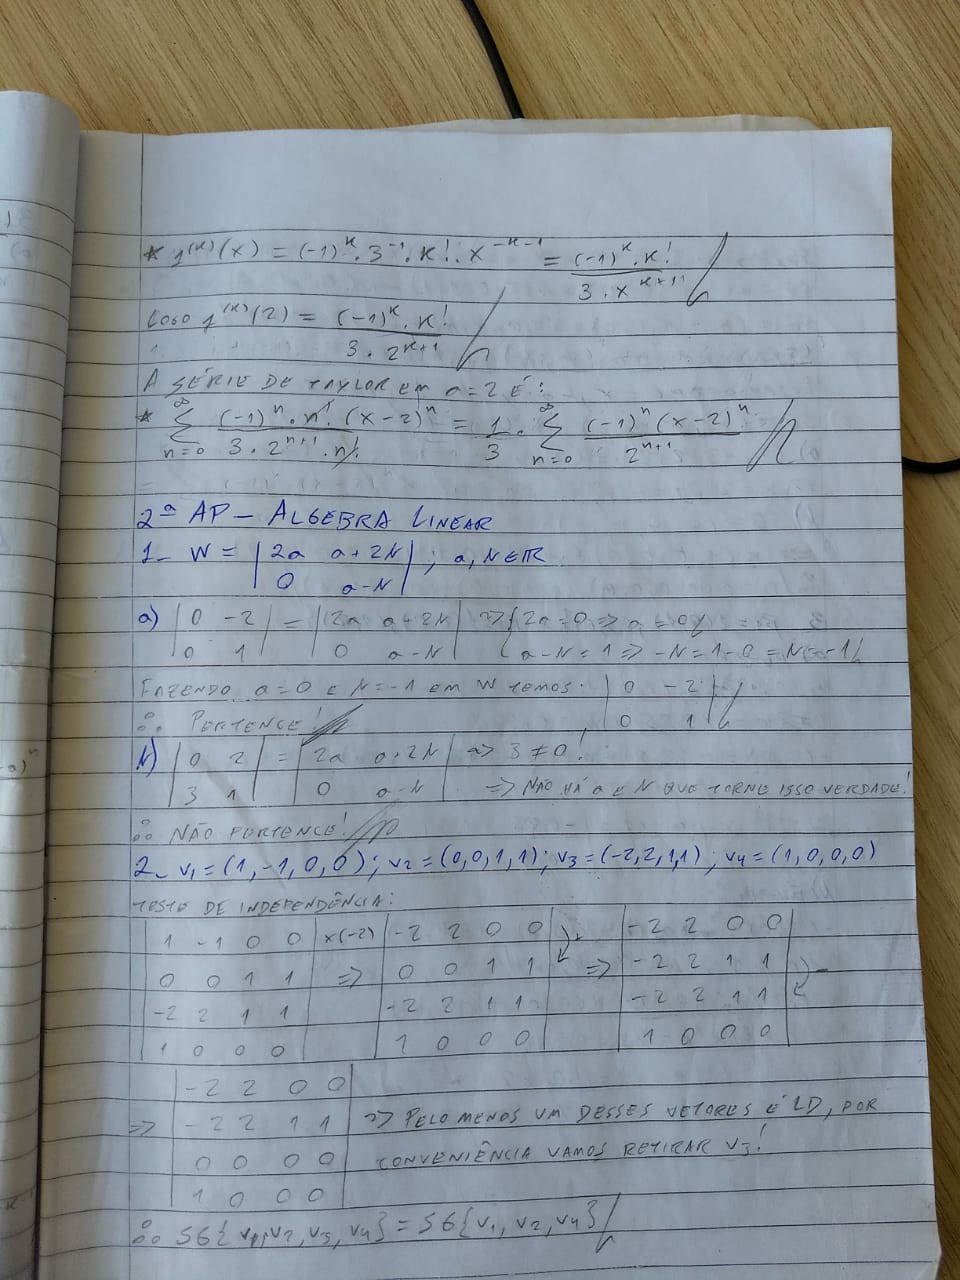 * f⁽ᵏ⁾(x) = (-1)ᵏ . 3⁻¹ . k! . x⁻ᵏ⁻¹ = (-1)ᵏ . k! / 3 . xᵏ⁺¹
LOGO f⁽ᵏ⁾(2) = (-1)ᵏ . k! / 3 . 2ᵏ⁺¹
A SÉRIE DE TAYLOR EM a=2 É:
* ∞ Σ n=0 (-1)ⁿ . n! . (x-2)ⁿ / 3 . 2ⁿ⁺¹ . n! = 1/3 . ∞ Σ n=0 (-1)ⁿ (x-2)ⁿ / 2ⁿ⁺¹
2ª AP - ALGEBRA LINEAR
1- W = | 2a a+2b | ; a, b ∈ IR
| 0 a-b |
a) | 0 -2 | = | 2a a+2b | => { 2a=0 => a=0
| 0 1 | | 0 a-b | { a-b=1 => -b=1-0 = b=-1
FAZENDO a=0 E b=-1 EM W TEMOS: | 0 -2 |
∴ PERTENCE! | 0 1 |
b) | 0 2 | = | 2a a+2b | => 3 ≠ 0!
| 3 1 | | 0 a-b | => NÃO HÁ a E b QUE TORNE ISSO VERDADE!
∴ NÃO PERTENCE!
2- v₁=(1,-1,0,0); v₂=(0,0,1,1); v₃=(-2,2,1,1); v₄=(1,0,0,0)
TESTE DE INDEPENDÊNCIA:
| 1 -1 0 0 | x(-2) | -2 2 0 0 | + | -2 2 0 0 |
| 0 0 1 1 | => | 0 0 1 1 | => | -2 2 1 1 | -
| -2 2 1 1 | | -2 2 1 1 | | -2 2 1 1 |
| 1 0 0 0 | | 1 0 0 0 | | 1 0 0 0 |
| -2 2 0 0 |
=> | -2 2 1 1 | => PELO MENOS UM DESSES VETORES É LD, POR
| 0 0 0 0 | CONVENIÊNCIA VAMOS RETIRAR V₃!
| 1 0 0 0 |
∴ SG{v₁,v₂,v₃,v₄} = SG{v₁,v₂,v₄}